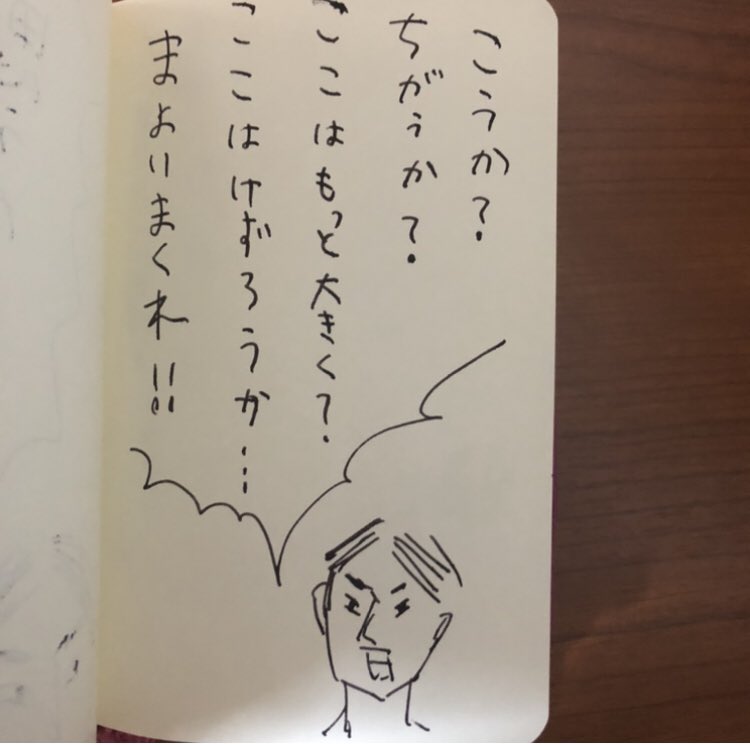 こうか?
ちがうか?
ここはもっと大きく?
ここはけずろうか…
まよいまくれ!!